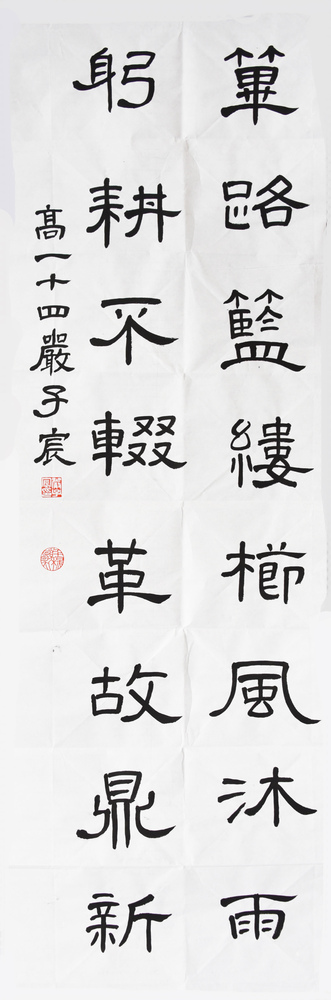 篳路籃縷櫛風沐雨
躬耕不輟革故鼎新
高一十四嚴子宸